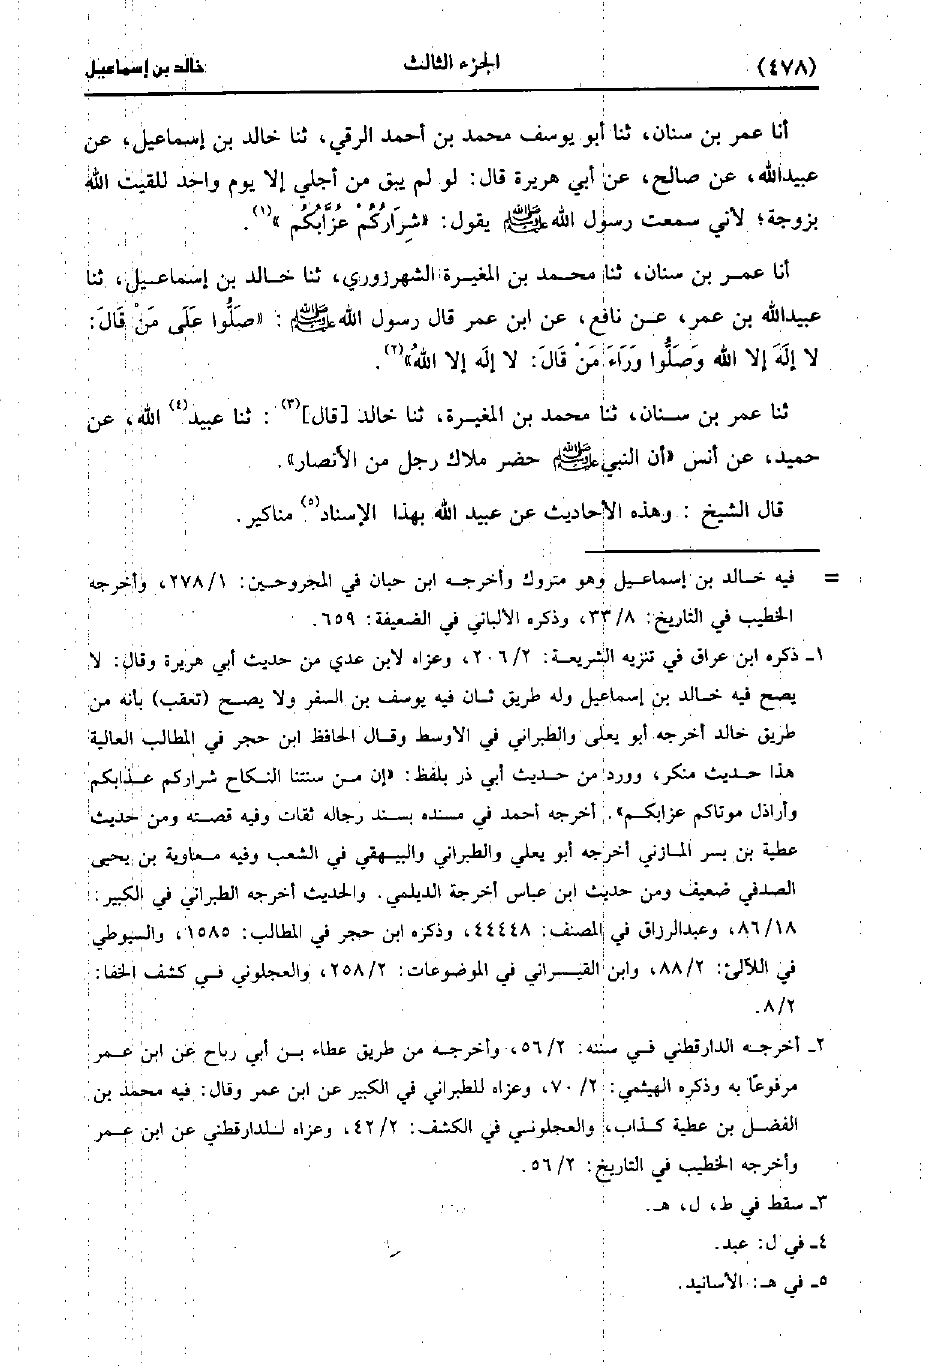 (٤٧٨) الجزء الثالث خالد بن إسماعيل
أنا عمر بن سنان، ثنا أبو يوسف محمد بن أحمد الرقي، ثنا خالد بن إسماعيل، عن
عبيدالله، عن صالح، عن أبي هريرة قال: لو لم يبق من أجلي إلا يوم واحد للقيت الله
بزوجة؛ لأني سمعت رسول الله ﷺ يقول: «شِرَارُكُمْ عُزَّابُكُم»(١).
أنا عمـر بن سنان، ثنا محمـد بن المغيرة الشهرزوري، ثنا خـالد بن إسماعـيل، ثنا
عبيدالله بن عمر، عـن نافع، عن ابن عمر قال رسول الله ﷺ : «صَلُّوا عَلَى مَنْ قَالَ:
لا إلَهَ إلا الله وَصَلُّوا وَرَاءَ مَنْ قَالَ: لا إلَه إلا اللهُ»(٢).
ثنا عمر بن سـنان، ثنا محمد بن المغيرة، ثنا خالد [قال](٣) : ثنا عبيد(٤) الله، عن
حميد، عن أنس «أن النبي ﷺ حضر ملاك رجل من الأنصار».
قال الشيخ : وهذه الأحاديث عن عبيد الله بهذا الإسناد(٥) مناكير.
= فيه خـالد بن إسماعـيل وهو متروك وأخرجـه ابن حبان في المجروحـين: ١/ ٢٧٨، وأخرجه
الخطيب في التاريخ: ٨/ ٣٣، وذكره الألباني في الضعيفة: ٦٥٩.
١ـ ذكره ابن عراق في تنزيه الشريعـة: ٢/ ٢٠٦، وعزاه لابن عدي من حديث أبي هريرة وقال: لا
يصح فيه خـالد بن إسماعيل وله طريق ثـان فيه يوسف بن السفر ولا يصـح (تعقب) بأنه من
طريق خالد أخرجه أبو يعلى والطبراني في الأوسط وقـال الحافظ ابن حجر في المطالب العالية
هذا حـديث منكر، وورد من حديث أبي ذر بلفظ: «إن مـن سنتنا النـكاح شراركم عـذابكم
وأراذل موتاكم عزابكـم». أخرجه أحمد في مسنده بسند رجاله ثقات وفيه قصـته ومن حديث
عطية بن بسر المـازني أخرجه أبو يعلي والطبراني والبيهقي في الشعب وفيه مـعاوية بن يحيى
الصدفي ضعيف ومن حديث ابن عباس أخرجة الديلمي. والحديث أخرجه الطبراني في الكبير:
١٨/ ٨٦، وعبدالرزاق في المصنف: ٤٤٤٤٨، وذكره ابن حجر في المطالب: ١٥٨٥، والسيوطي
في اللآلئ: ٢/ ٨٨، وابن القيـسراني في الموضوعات: ٢/ ٢٥٨، والعجلوني فـي كشف الخفا:
٢/ ٨.
٢ـ أخرجـه الدارقطني فـي سننه: ٢/ ٥٦، وأخرجـه من طريق عطاء بـن أبي رباح عن ابن عـمر
مرفوعًا به وذكره الهيثمي: ٢/ ٧٠، وعزاه للطبراني في الكبير عن ابن عمر وقال: فيه محمـد بن
الفضـل بن عطية كـذاب، والعجلونـي في الكشف: ٢/ ٤٢، وعزاه لـلدارقطني عن ابن عـمر
وأخرجه الخطيب في التاريخ: ٢/ ٥٦.
٣ـ سقط في ط، ل، هـ.
٤ـ في ل: عبد.
٥ـ في هـ: الأسانيد.